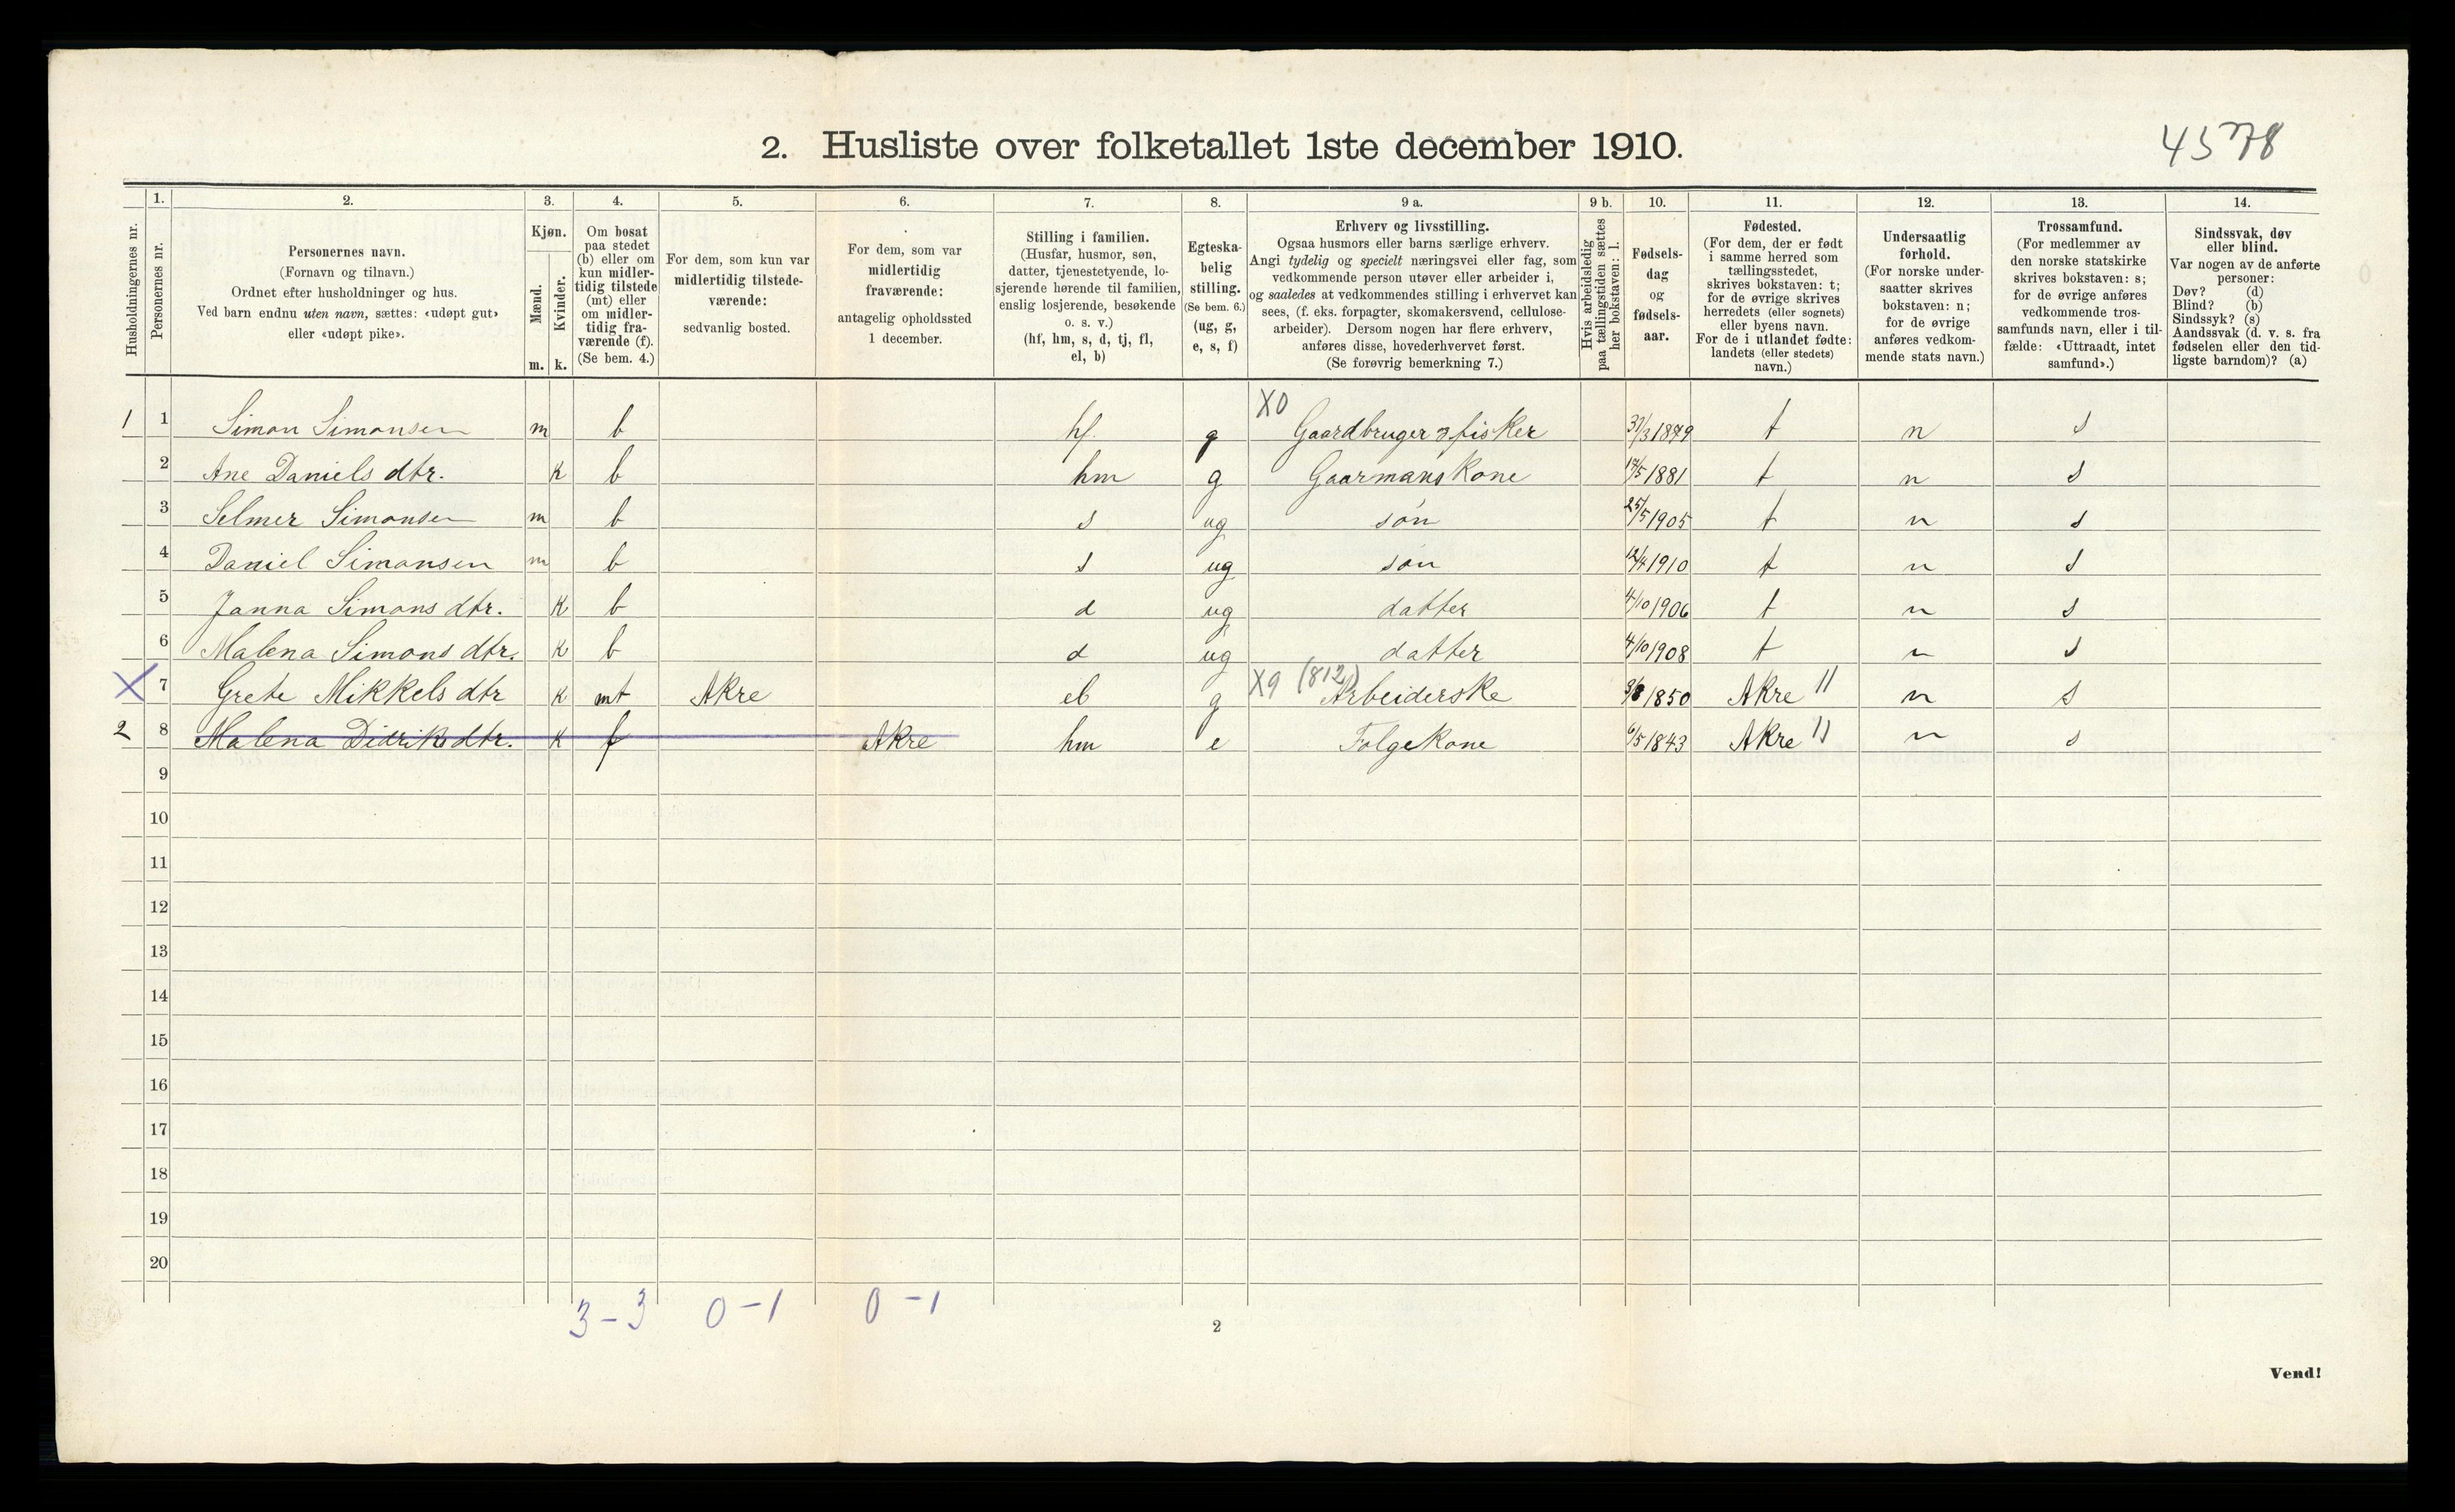 2. Husliste over folketallet 1ste december 1910.
4578
Husholdningernes nr.
1.
Personernes nr.
2.
Personernes navn.
(Fornavn og tilnavn.)
Ordnet efter husholdninger og hus.
Ved barn endnu uten navn, sættes: «udøpt gut»
eller «udøpt pike».
3.
Kjøn.
Mænd.
Kvinder.
m. k.
4.
Om bosat
paa stedet
(b) eller om
kun midler-
tidig tilstede
(mt) eller
om midler-
tidig fra-
værende (f).
(Se bem. 4.)
5.
For dem, som kun var
midlertidig tilstede-
værende:
sedvanlig bosted.
6.
For dem, som var
midlertidig
fraværende:
antagelig opholdssted
1 december.
7.
Stilling i familien.
(Husfar, husmor, søn,
datter, tjenestetyende, lo-
sjerende hørende til familien,
enslig losjerende, besøkende
o. s. v.)
(hf, hm, s, d, tj, fl,
el, b)
8.
Egteska-
belig
stilling.
(Se bem. 6.)
(ug, g,
e, s, f)
9 a.
Erhverv og livsstilling.
Ogsaa husmors eller barns særlige erhverv.
Angi tydelig og specielt næringsvei eller fag, som
vedkommende person utøver eller arbeider i,
og saaledes at vedkommendes stilling i erhvervet kan
sees, (f. eks. forpagter, skomakersvend, cellulose-
arbeider). Dersom nogen har flere erhverv,
anføres disse, hovederhvervet først.
(Se forøvrig bemerkning 7.)
9 b.
Hvis arbeidsledig
paa tællingstiden sættes
her bokstaven: l.
10.
Fødsels-
dag
og
fødsels-
aar.
11.
Fødested.
(For dem, der er født
i samme herred som
tællingsstedet,
skrives bokstaven: t;
for de øvrige skrives
herredets (eller sognets)
eller byens navn.
For de i utlandet fødte:
landets (eller stedets)
navn.)
12.
Undersaatlig
forhold.
(For norske under-
saatter skrives
bokstaven: n;
for de øvrige
anføres vedkom-
mende stats navn.)
13.
Trossamfund.
(For medlemmer av
den norske statskirke
skrives bokstaven: s;
for de øvrige anføres
vedkommende tros-
samfunds navn, eller i til-
fælde: «Uttraadt, intet
samfund».)
14.
Sindssvak, døv
eller blind.
Var nogen av de anførte
personer:
Døv? (d)
Blind? (b)
Sindssyk? (s)
Aandssvak (d. v. s. fra
fødselen eller den tid-
ligste barndom)? (a)
X0
1 1 Simon Simonsen m b hf g Gaardbruger & fisker 31/3 1879 t n s
2 Ane Daniels dtr. k b hm g Gaarmans kone 17/5 1881 t n s
3 Selmer Simonsen m b s ug søn 25/5 1905 t n s
4 Daniel Simonsen m b s ug søn 12/4 1910 t n s
5 Janna Simons dtr. k b d ug datter 4/10 1906 t n s
6 Malena Simons dtr. k b d ug datter 4/10 1908 t n s
X9 (812)
X 7 Grete Mikkels dtr k mt Akre el g Arbeiderske 3/8 1850 Akre 11 n s
2 8 Malena Didriks dtr. k f Akre hm e Folgekone 6/5 1843 Akre 11 n s
9
10
11
12
13
14
15
16
17
18
19
20
3-3 0-1 0-1
2
Vend!